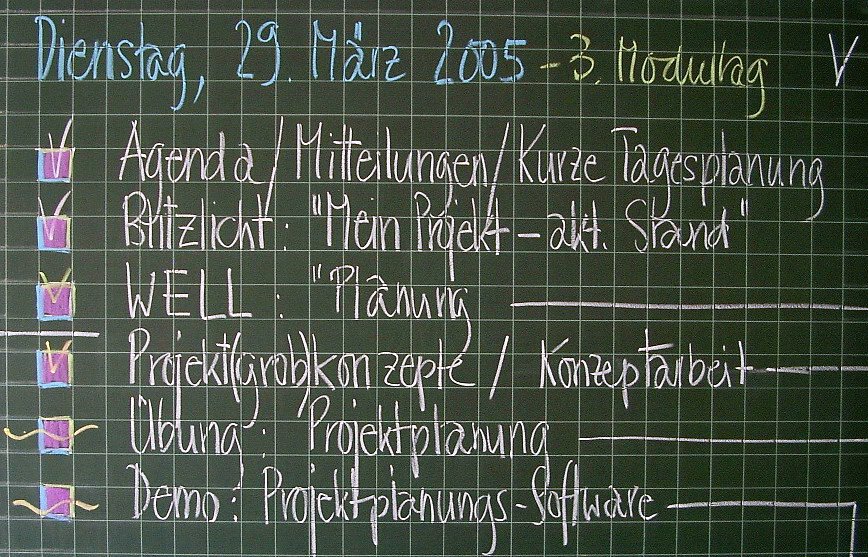 Dienstag, 29. März 2005 - 3. Modultag V
Agenda / Mitteilungen / Kurze Tagesplanung
Blitzlicht : "Mein Projekt – akt. Stand"
WELL : "Planung
Projekt(grob)konzepte / Konzeptarbeit
Übung : Projektplanung
Demo : Projektplanungs-Software